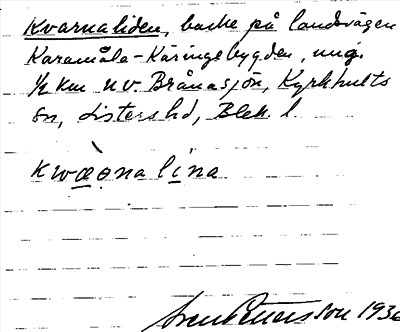 Kvarnaliden, backe på landsvägen
Karamåla-Käringebygden, ung.
½ km nv. Brånasjön, Kyrkhults
sn, Listers hd, Blek. l.
kwæ̣ǝnalina
1936